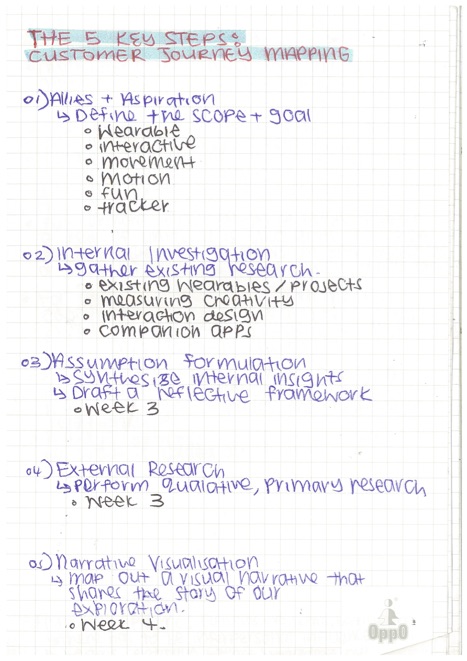 THE 5 KEY STEPS:
CUSTOMER JOURNEY MAPPING
01) Allies + Aspiration
↳ Define the scope + goal
• wearable
• interactive
• movement
• motion
• fun
• tracker
02) Internal Investigation
↳ gather existing research.
• existing wearables / projects
• measuring creativity
• interaction design
• companion apps
03) Assumption formulation
↳ synthesise internal insights
↳ Draft a reflective framework
• week 3
04) External Research
↳ perform qualative, primary research
• week 3
05) Narrative Visualisation
↳ map out a visual narrative that
shares the story of our
exploration.
• week 4.
OppO